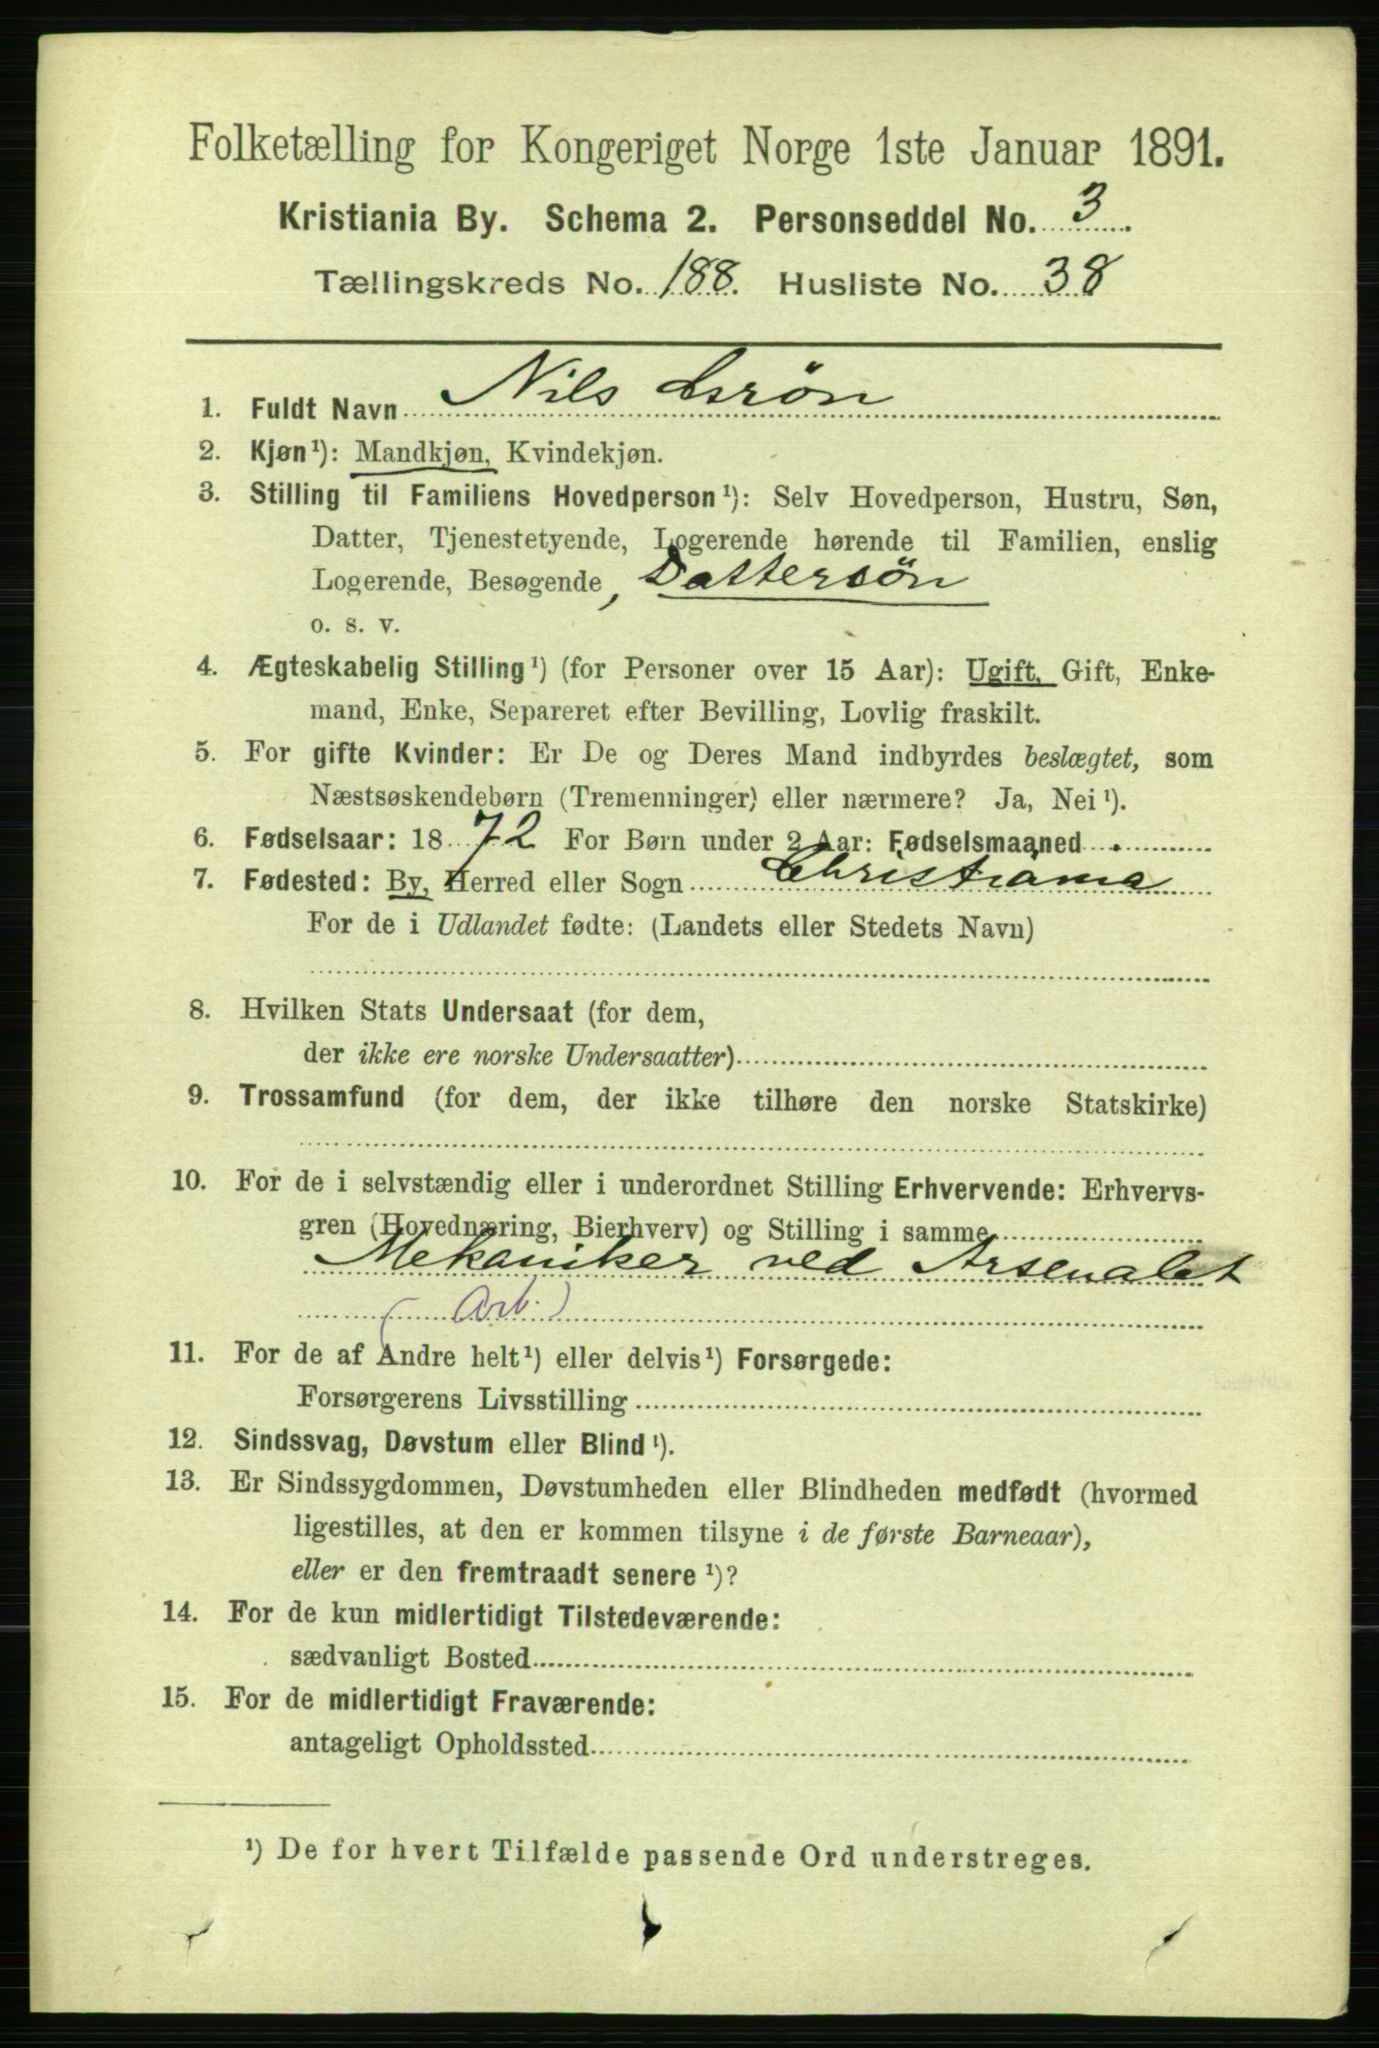 Folketælling for Kongeriget Norge 1ste Januar 1891.
Kristiania By. Schema 2. Personseddel No. 3.
Tællingskreds No. 188. Husliste No. 38
1. Fuldt Navn Nils
2. Kjøn ¹): Mandkjøn, Kvindekjøn.
3. Stilling til Familiens Hovedperson ¹): Selv Hovedperson, Hustru, Søn,
Datter, Tjenestetyende, Logerende hørende til Familien, enslig
Logerende, Besøgende, Dattersøn
o. s. v.
4. Ægteskabelig Stilling ¹) (for Personer over 15 Aar): Ugift, Gift, Enke-
mand, Enke, Separeret efter Bevilling, Lovlig fraskilt.
5. For gifte Kvinder: Er De og Deres Mand indbyrdes beslægtet, som
Næstsøskendebørn (Tremenninger) eller nærmere? Ja, Nei ¹).
6. Fødselsaar: 1872 For Børn under 2 Aar: Fødselsmaaned
7. Fødested: By, Herred eller Sogn Christiania
For de i Udlandet fødte: (Landets eller Stedets Navn)
8. Hvilken Stats Undersaat (for dem,
der ikke ere norske Undersaatter)
9. Trossamfund (for dem, der ikke tilhøre den norske Statskirke)
10. For de i selvstændig eller i underordnet Stilling Erhvervende: Erhvervs-
gren (Hovednæring, Bierhverv) og Stilling i samme
Mekaniker ved Arsenalet
(Arb.)
11. For de af Andre helt ¹) eller delvis ¹) Forsørgede:
Forsørgerens Livsstilling
12. Sindssvag, Døvstum eller Blind ¹).
13. Er Sindssygdommen, Døvstumheden eller Blindheden medfødt (hvormed
ligestilles, at den er kommen tilsyne i de første Barneaar),
eller er den fremtraadt senere ¹)?
14. For de kun midlertidigt Tilstedeværende:
sædvanligt Bosted
15. For de midlertidigt Fraværende:
antageligt Opholdssted
¹) De for hvert Tilfælde passende Ord understreges.